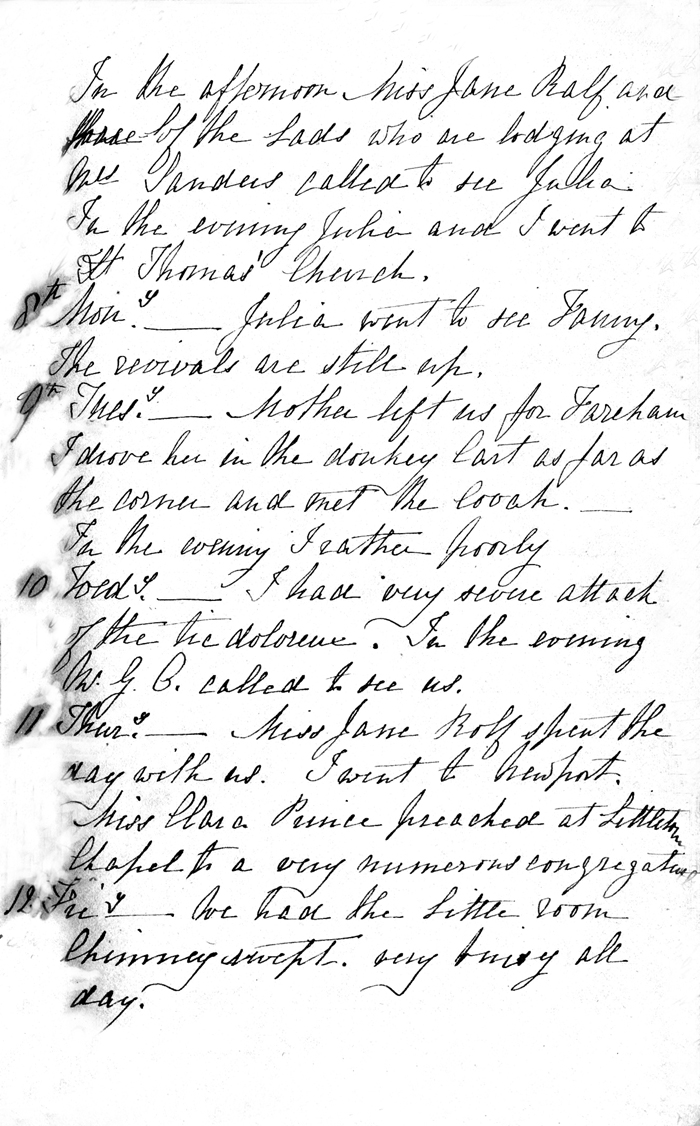 In the afternoon Miss Jane Rolf and
three of the Lads who are lodging at
Mrs Sanders called to see Julia
In the evening Julia and I went to
St Thomas' Church.
8th Mon.y — Julia went to see Fanny.
The revivals are still up.
9th Tues.y — Mother left us for Fareham
I drove her in the donkey Cart as far as
the corner and met the Coach. —
In the evening I rather poorly
10 Wed.y. — I had very severe attack
of the tic doloreux. In the evening
W. G. B. called to see us.
11 Thur.y — Miss Jane Rolf spent the
day with us. I went to Newport.
Miss Clara Prince preached at Littleton
Chapel to a very numerous congregation
12 Fri.y — We had the Little room
Chimney swept. very busy all
day.